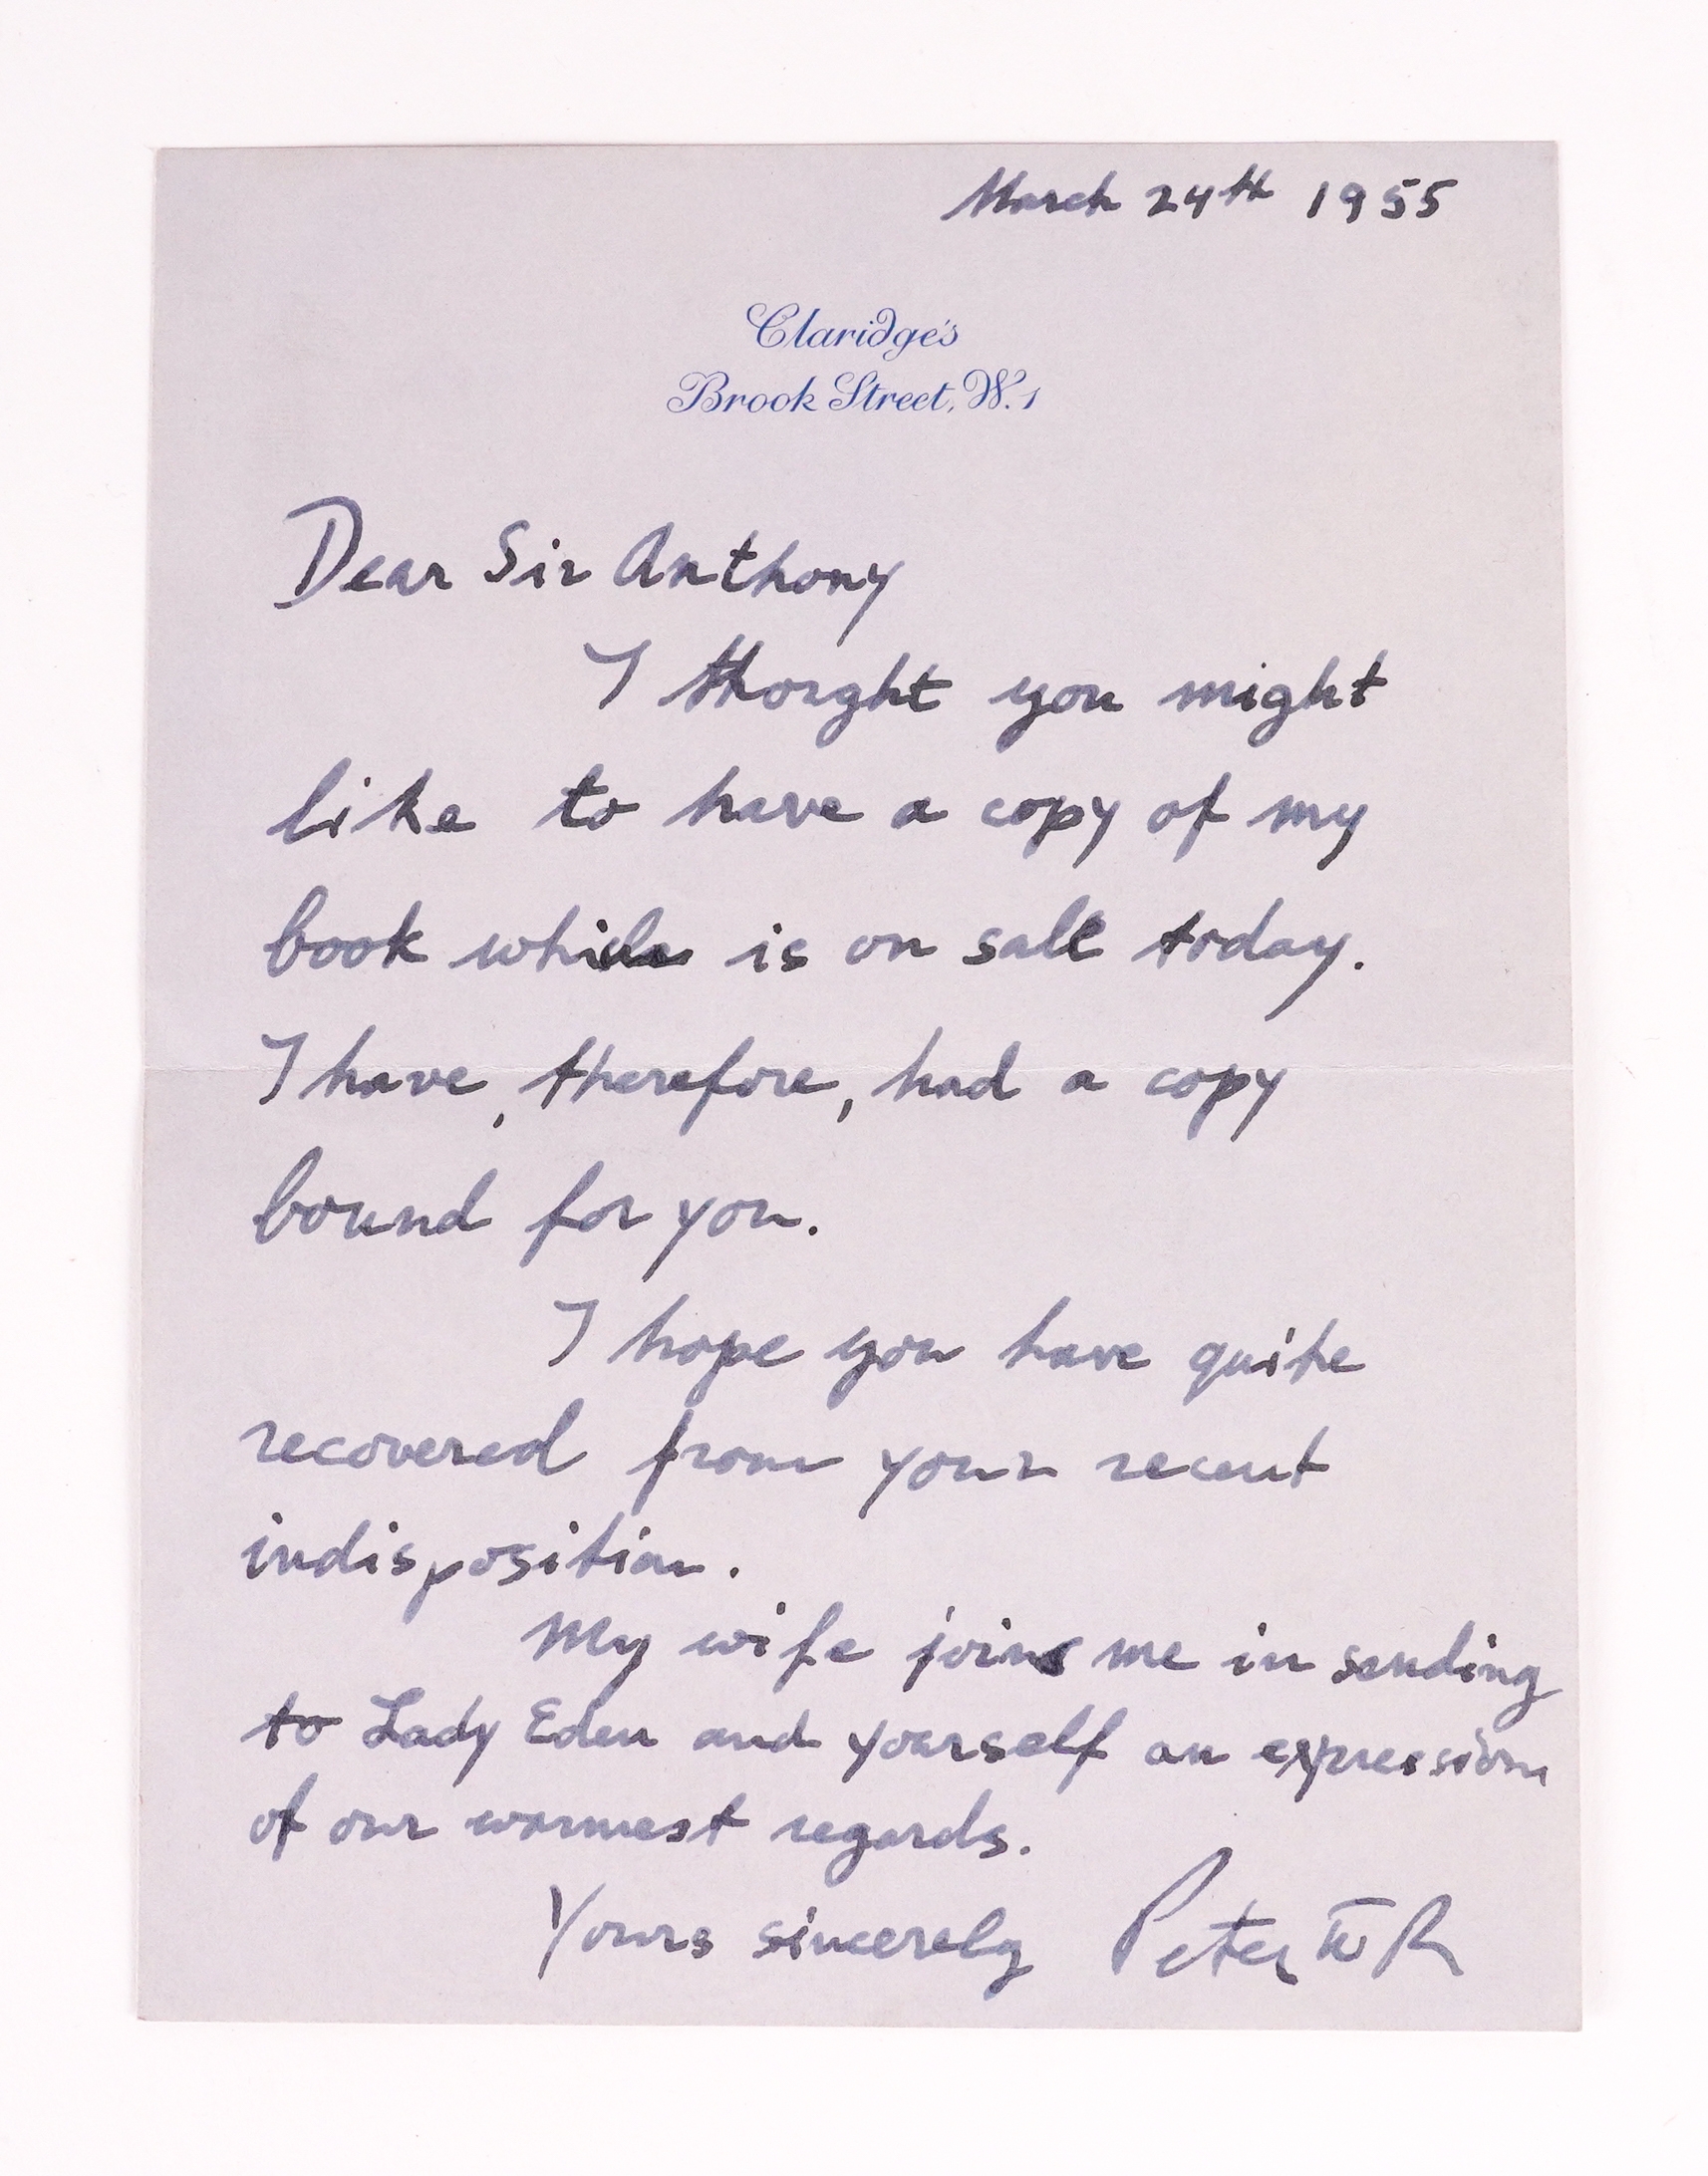 March 24th 1955
Claridge's
Brook Street, W.1
Dear Sir Anthony
I thought you might
like to have a copy of my
book which is on sale today.
I have, therefore, had a copy
bound for you.
I hope you have quite
recovered from your recent
indisposition.
My wife joins me in sending
to Lady Eden and yourself an expression
of our warmest regards.
Yours sincerely Peter II R